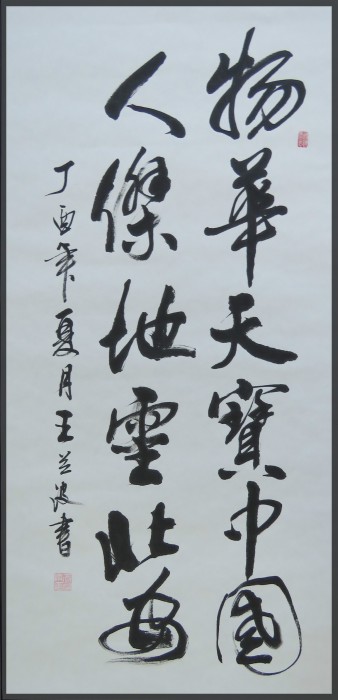 物華天寶中國
人傑地靈北安
丁酉年夏月王兰波書